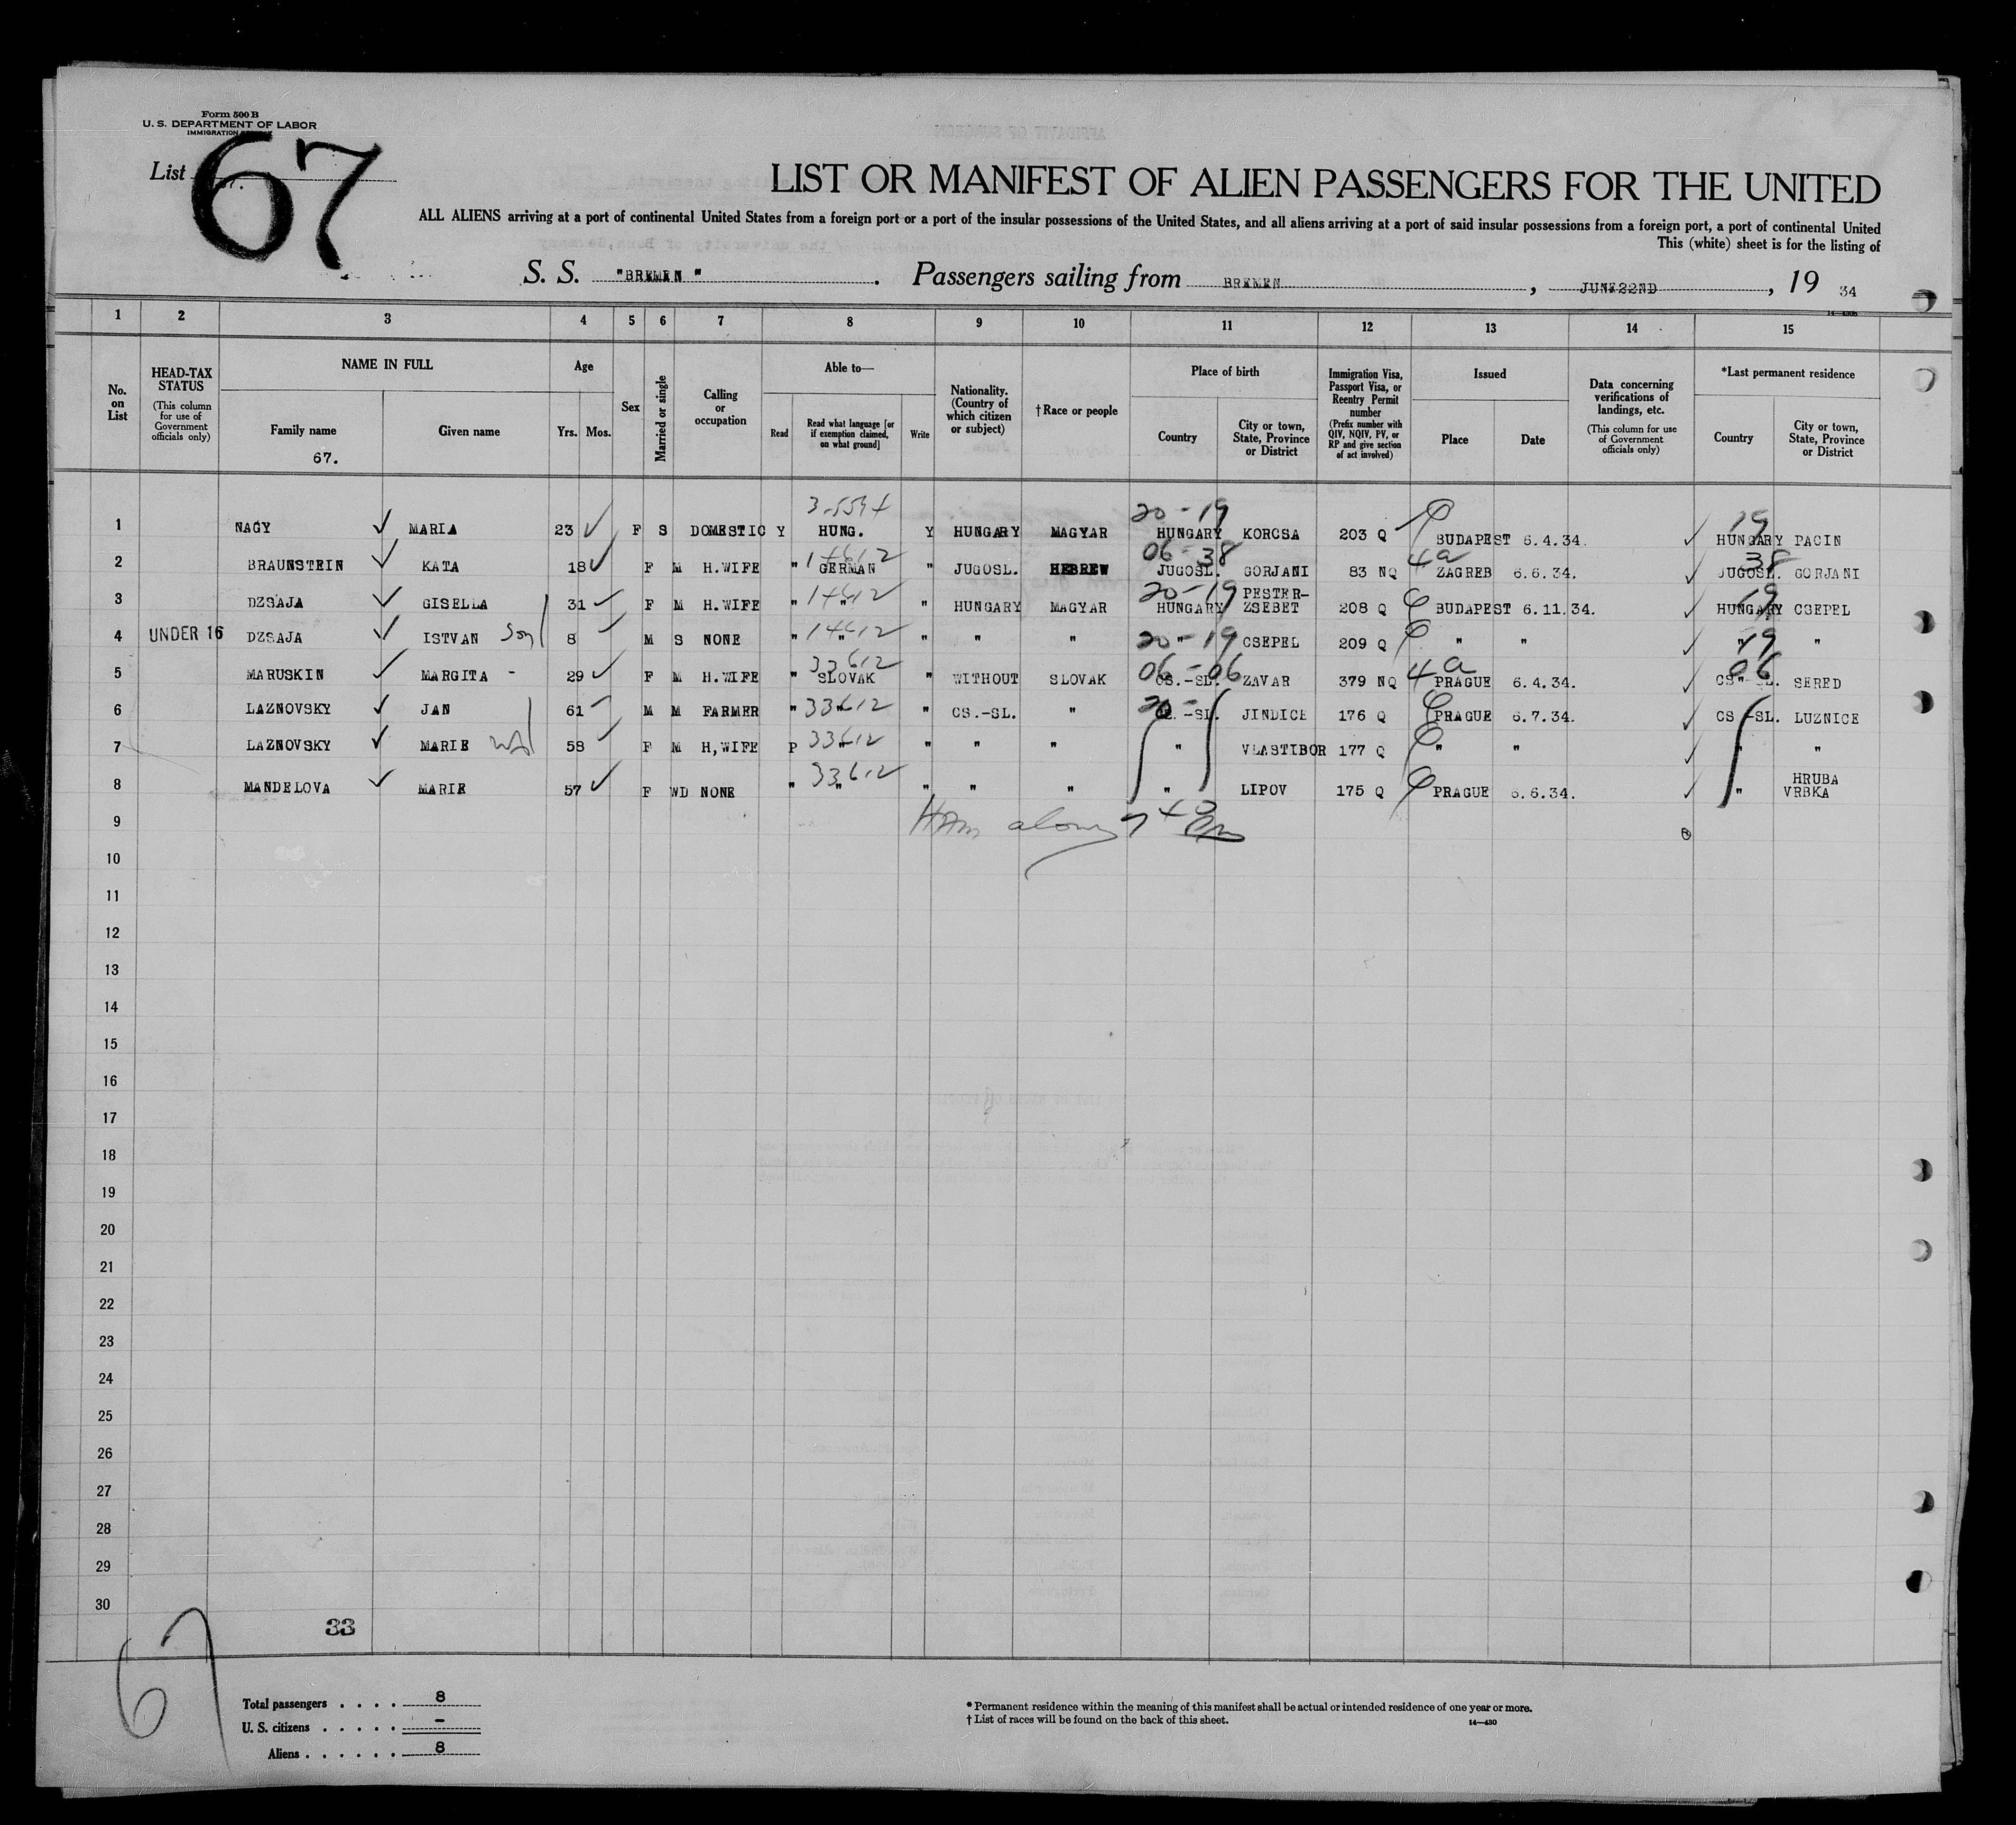 Form 500 B
U. S. DEPARTMENT OF LABOR
IMMIGRATION
List 67
LIST OR MANIFEST OF ALIEN PASSENGERS FOR THE UNITED
ALL ALIENS arriving at a port of continental United States from a foreign port or a port of the insular possessions of the United States, and all aliens arriving at a port of said insular possessions from a foreign port, a port of continental United
This (white) sheet is for the listing of
S. S. "BREMEN". Passengers sailing from BREMEN, JUNE 22ND, 19 34
1 2 3 4 5 6 7 8 9 10 11 12 13 14 15
No. on List
HEAD-TAX STATUS (This column for use of Government officials only)
NAME IN FULL
Family name
67.
Given name
Age
Yrs. Mos.
Sex
Married or single
Calling or occupation
Able to—
Read
Read what language [or if exemption claimed, on what ground]
Write
Nationality. (Country of which citizen or subject)
†Race or people
Place of birth
Country
City or town, State, Province or District
Immigration Visa, Passport Visa, or Reentry Permit number (Prefix number with QIV, NQIV, PV, or RP and give section of act involved)
Issued
Place
Date
Data concerning verifications of landings, etc. (This column for use of Government officials only)
*Last permanent residence
Country
City or town, State, Province or District
20-19 19
1 NAGY ✓ MARIA 23 ✓ F S DOMESTIC Y HUNG. Y HUNGARY MAGYAR HUNGARY KORCSA 203 Q BUDAPEST 6.4.34. ✓ HUNGARY PACIN
14612 06-38 4a 38
2 BRAUNSTEIN ✓ KATA 18 ✓ F M H.WIFE " GERMAN " JUGOSL. HEBREW JUGOSL. GORJANI 83 NQ ZAGREB 6.6.34. ✓ JUGOSL. GORJANI
14612 20-19 19
3 DZSAJA ✓ GISELLA 31 ✓ F M H.WIFE " " " HUNGARY MAGYAR HUNGARY PESTER-ZSEBET 208 Q BUDAPEST 6.11.34. ✓ HUNGARY CSEPEL
14612 20-19 19
4 UNDER 16 DZSAJA ✓ ISTVAN Son 8 M S NONE " " " " " " CSEPEL 209 Q " " ✓ " "
33612 06-06 4a 06
5 MARUSKIN ✓ MARGITA - 29 ✓ F M H.WIFE " SLOVAK " WITHOUT SLOVAK CS.-SL. ZAVAR 379 NQ PRAGUE 6.4.34. ✓ CS.-SL. SERED
33612
6 LAZNOVSKY ✓ JAN 61 M M FARMER " " " CS.-SL. " CS.-SL. JINDICE 176 Q PRAGUE 6.7.34. ✓ CS.-SL. LUZNICE
33612
7 LAZNOVSKY ✓ MARIE 58 F M H,WIFE P " " " " " VLASTIBOR 177 Q " " ✓ " "
33612
8 MANDELOVA ✓ MARIE 57 ✓ F WD NONE " " " " " " LIPOV 175 Q PRAGUE 6.6.34. ✓ " HRUBA VRBKA
9
10
11
12
13
14
15
16
17
18
19
20
21
22
23
24
25
26
27
28
29
30
33
67
Total passengers . . . . 8
U. S. citizens . . . . . –
Aliens . . . . . . 8
* Permanent residence within the meaning of this manifest shall be actual or intended residence of one year or more.
† List of races will be found on the back of this sheet.
14—430